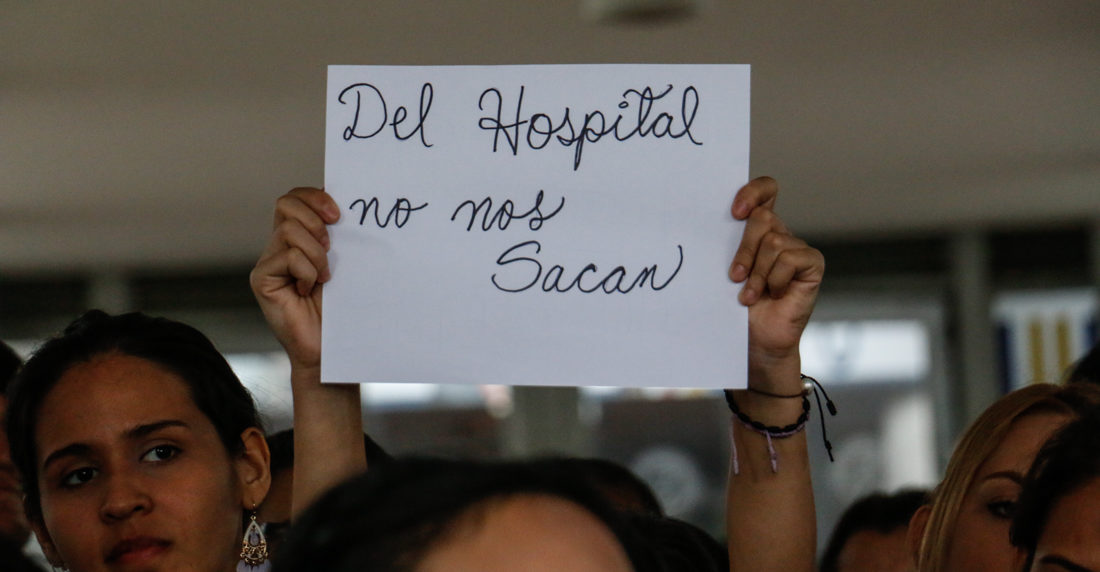 Del Hospital
no nos
Sacan